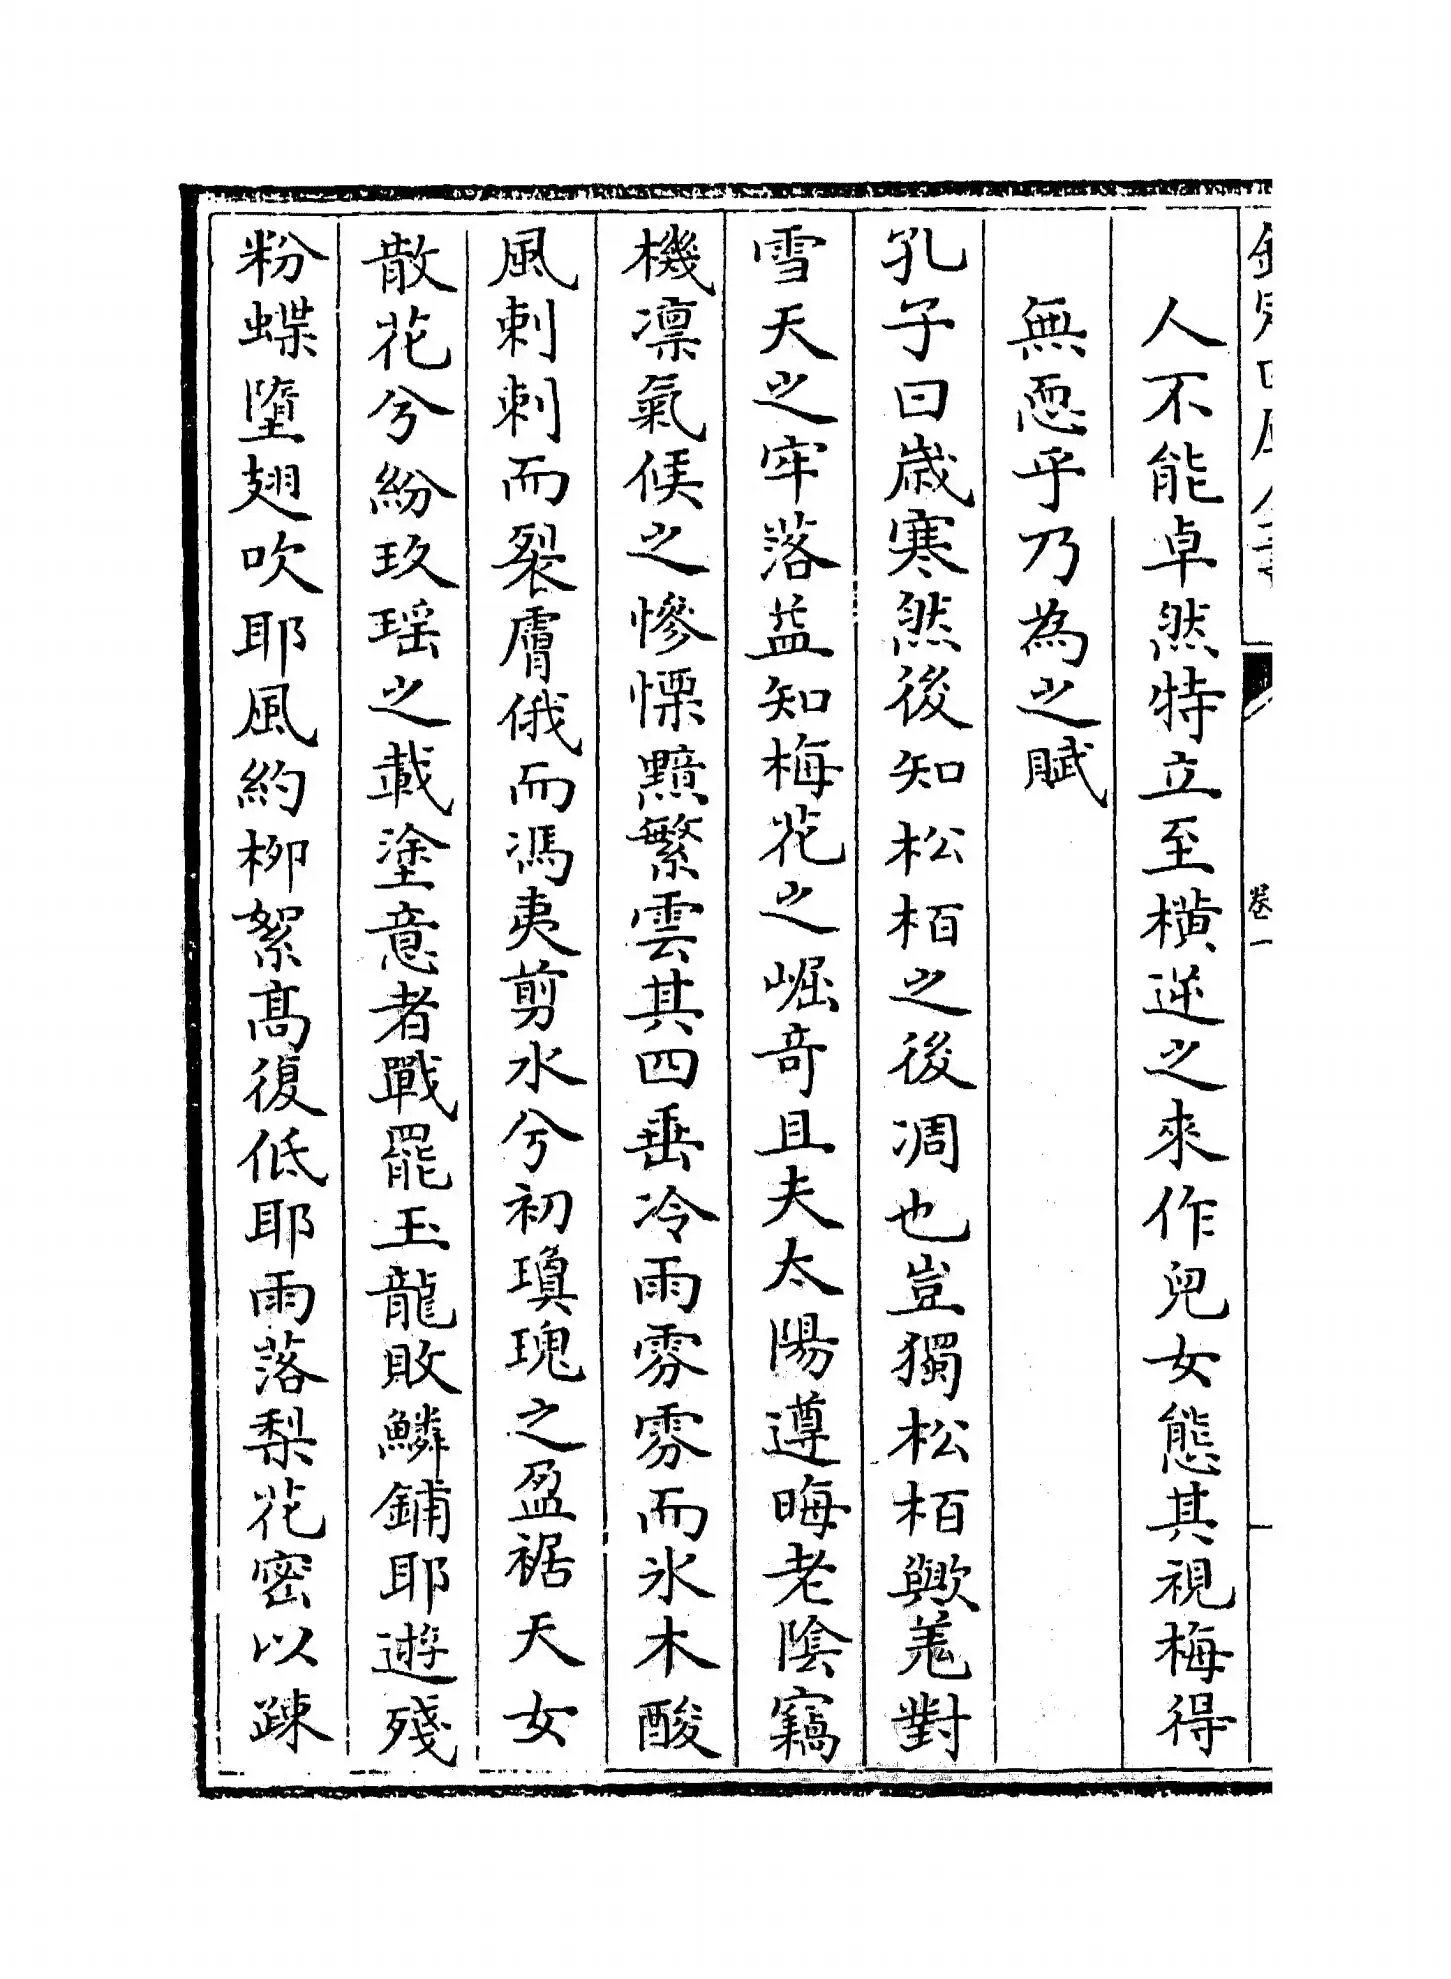 人不能卓然特立至橫逆之來作兒女態其視梅得
無恧乎乃為之賦
孔子曰歳寒然後知松栢之後凋也豈獨松栢歟羗對
雪天之牢落益知梅花之崛竒且夫太陽遵晦老隂竊
機凛氣候之慘慄黯繁雲其四垂冷雨雰雰而氷木酸
風刺刺而裂膚俄而馮夷剪水兮初瓊瑰之盈裾天女
散花兮紛玖瑶之載塗意者戰罷玉龍敗鱗鋪耶遊殘
粉蝶墮翅吹耶風約栁絮髙復低耶雨落梨花密以踈
卷一